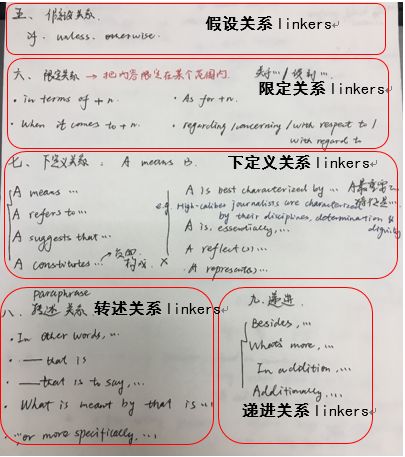 五、假设关系
假设关系 linkers
if. unless. otherwise.
六、限定关系 → 把内容限定在某个范围内. 关于…/谈到…
限定关系 linkers
· in terms of + n. · As for + n.
· When it comes to + n. · regarding/concerning/with respect to/
with regard to
七、下定义关系: A means B.
下定义关系 linkers
A means … A is best characterized by … A最重要的
特征是…
A refers to … e.g. High-caliber journalists are characterized
by their disciplines, determination &
dignity
A suggests that … A is, essentially, …
A constitutes … → 构成. × A reflect(s) …
A represent(s) …
paraphrase
八、转述关系
转述关系 linkers
· In other words, …
· —— that is
· —— that is to say, …
· What is meant by that is …
· …or more specifically, …
九、递进
Besides, …
What's more, …
In addition, …
Additionally, …
递进关系 linkers